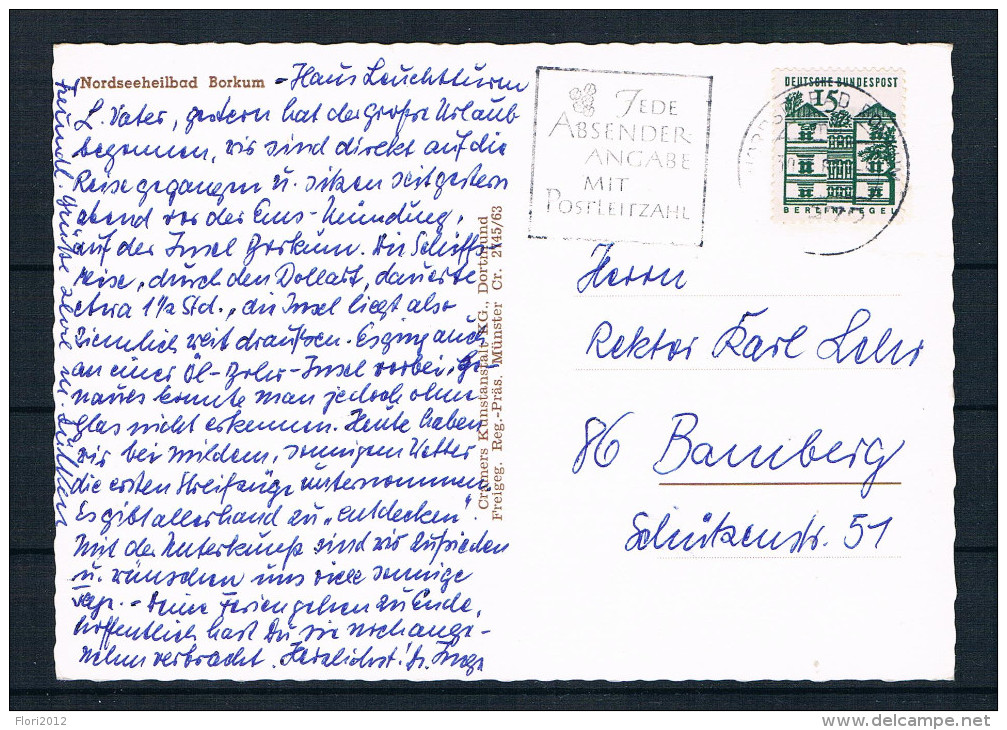 Nordseeheilbad Borkum - Haus Leuchtturm
L. Vater, gestern hat der große Urlaub
begonnen, wir sind direkt auf die
Reise gegangen u. sitzen seit gestern
abend vor der Ems-Mündung,
auf der Insel Borkum. Die Schiffs-
reise, durch den Dollart, dauerte
etwa 1½ Std., die Insel liegt also
ziemlich weit draußen. Es ging auch
an einer Öl-Bohr-Insel vorbei. Ge-
naues konnte man jedoch ohne
Glas nicht erkennen. Heute haben
wir bei mildem, sonnigen Wetter
die ersten Streifzüge unternommen.
Es gibt allerhand zu „entdecken".
Mit der Unterkunft sind wir zufrieden
u. wünschen uns viele sonnige
Tage. - Deine Ferien gehen zu Ende,
hoffentlich hast Du sie noch ange-
nehm verbracht. Herzlichst!
freundl. Grüße
Cramers Kunstanstalt KG., Dortmund
Freigeg. Reg.-Präs. Münster Cr. 2145/63
JEDE
ABSENDER-
ANGABE
MIT
POSTLEITZAHL
DEUTSCHE BUNDESPOST
15
BEREIN TEGEL
Herrn
Rektor Karl Lehr
86 Bamberg
Schützenstr. 51
Flori2012
www.delcampe.net